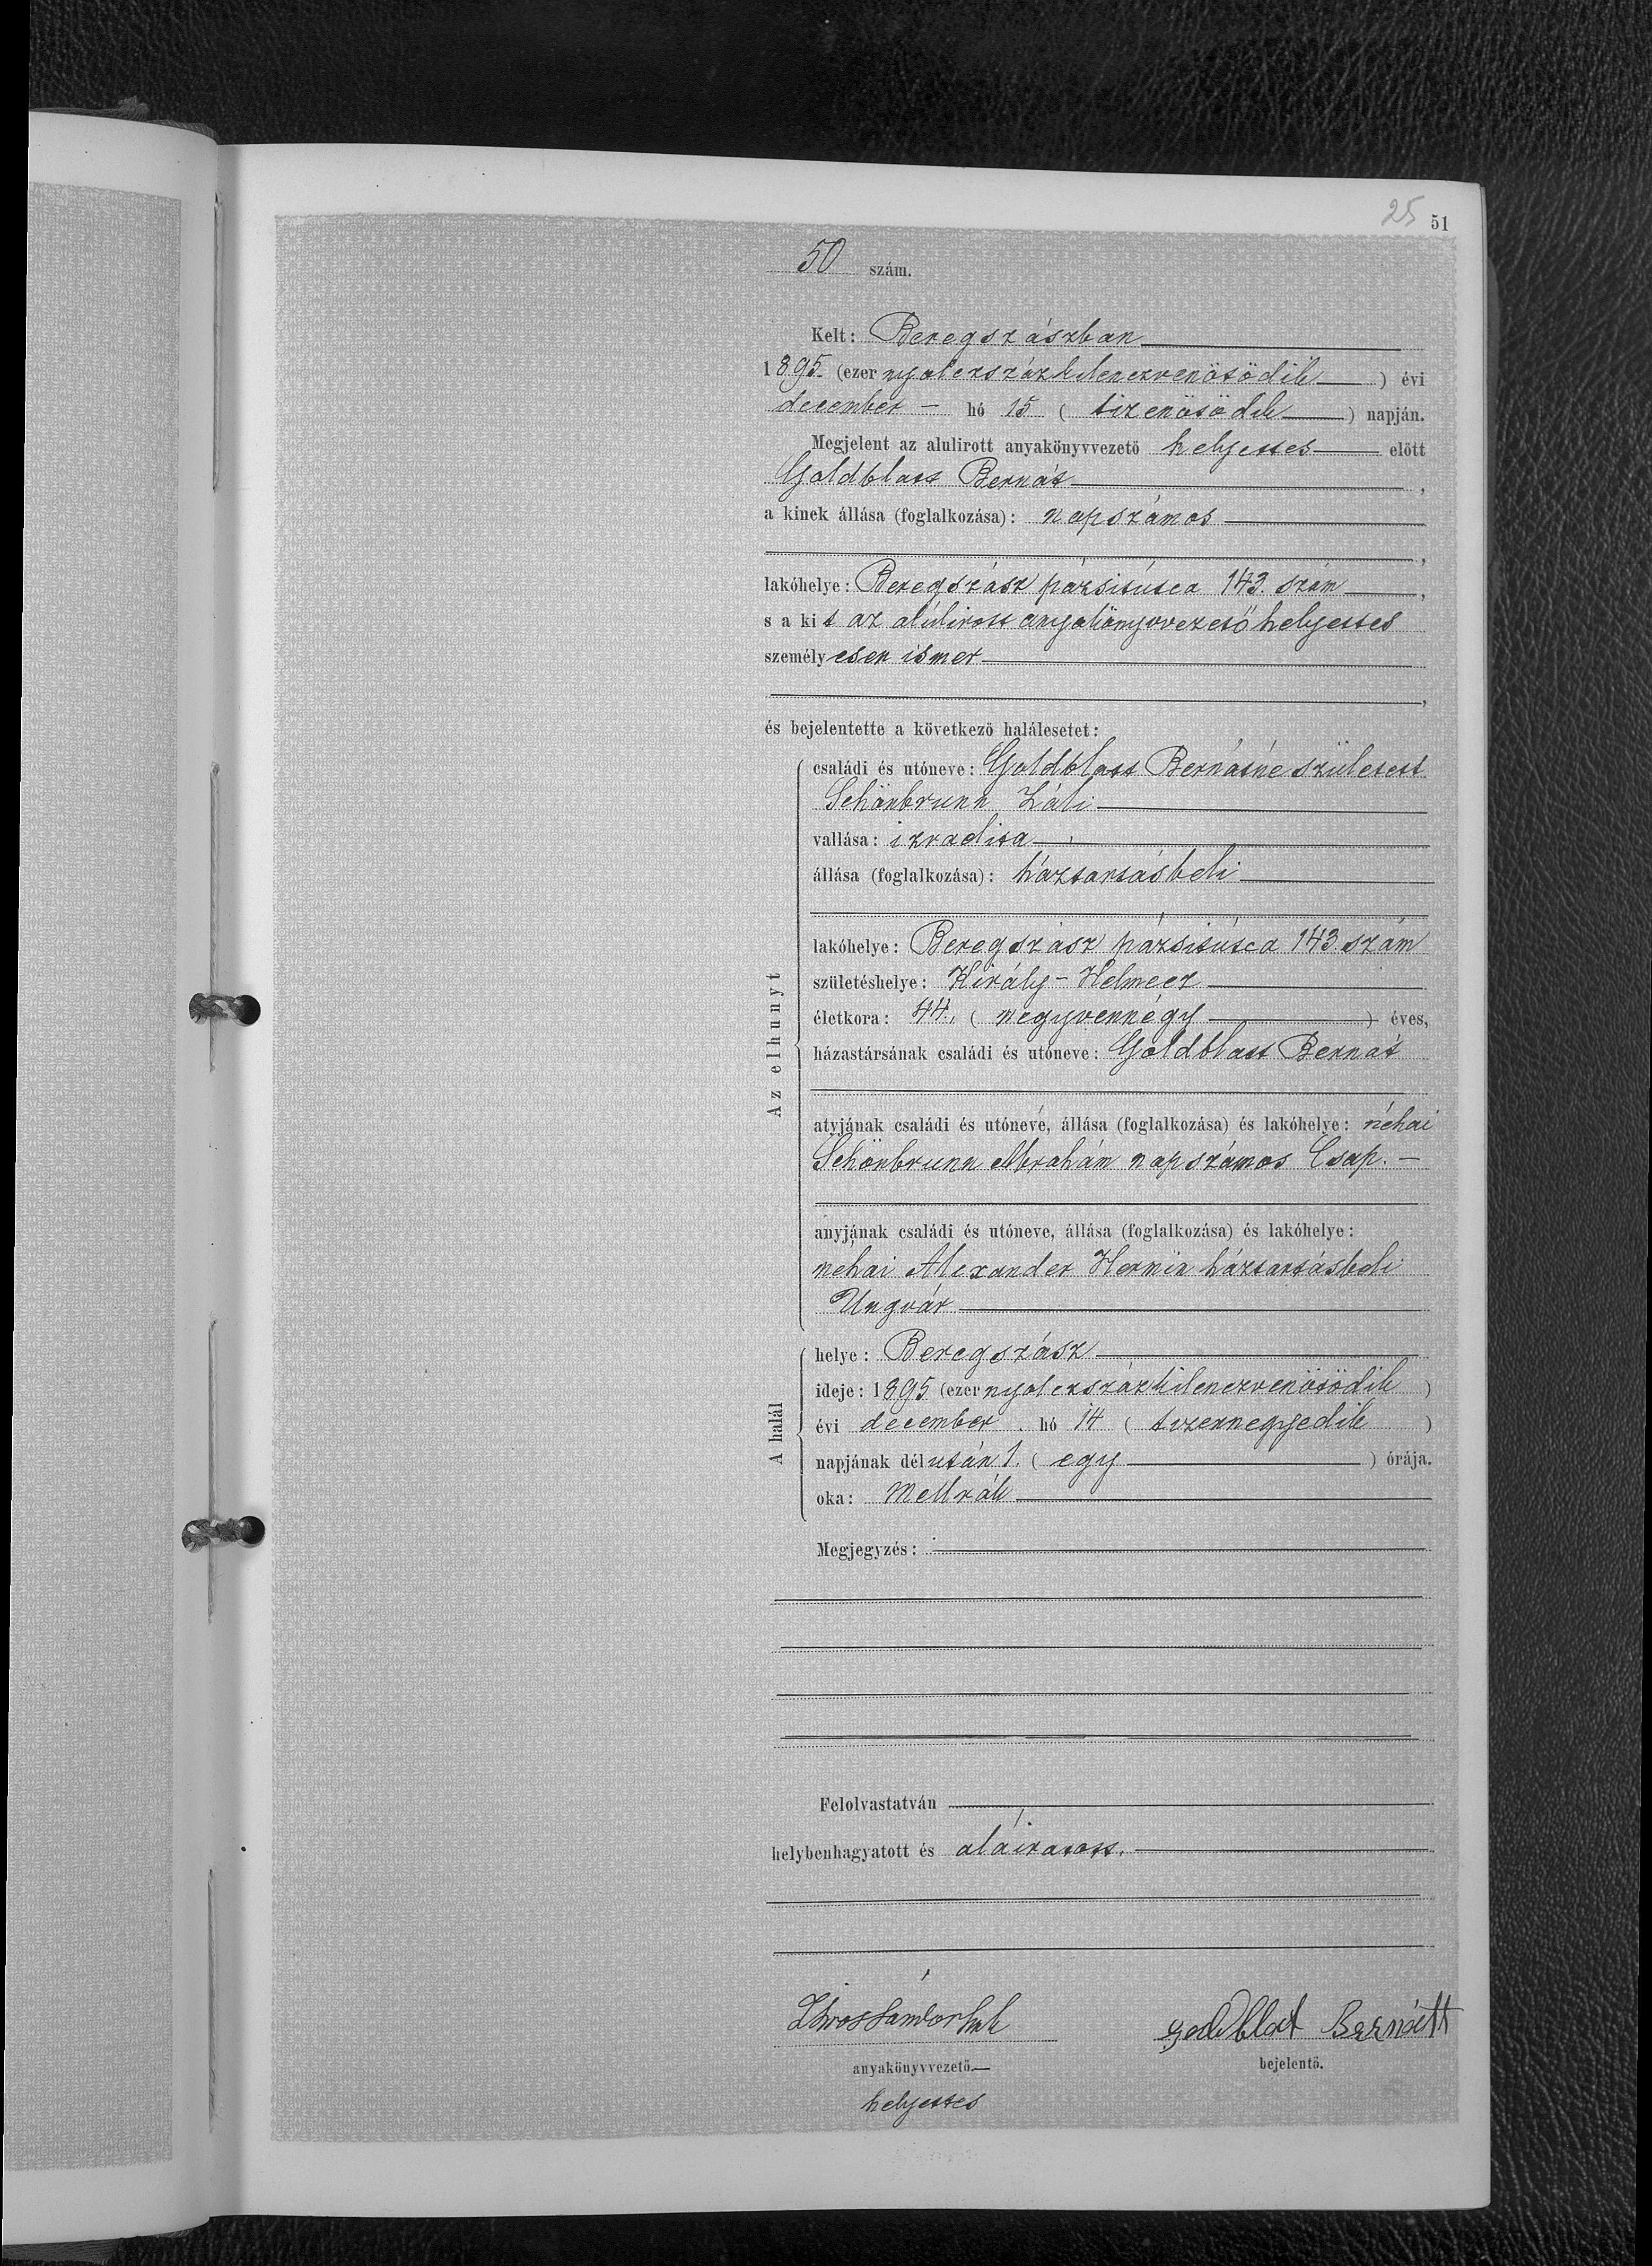 25 51
50 szám.
Kelt: Beregszászban
1895. (ezer nyolczszázkilenczvenötödik) évi
december – hó 15 (tizenötödik) napján.
Megjelent az alulirott anyakönyvvezető helyettes előtt
Goldblatt Bernát,
a kinek állása (foglalkozása): napszámos
,
lakóhelye: Beregszász pázsitútca 143. szám,
s a kit az alúlirott anyakönyvvezető helyettes
személyesen ismer
,
és bejelentette a következő halálesetet:
Az elhunyt
családi és utóneve: Goldblatt Bernátné született
Schönbrunn Záli
vallása: izraelita
állása (foglalkozása): háztartásbeli
lakóhelye: Beregszász pázsitútca 143. szám
születéshelye: Király-Helmecz
életkora: 44. (negyvennégy) éves,
házastársának családi és utóneve: Goldblatt Bernát
atyjának családi és utóneve, állása (foglalkozása) és lakóhelye: néhai
Schönbrunn Abrahám napszámos Csap. –
anyjának családi és utóneve, állása (foglalkozása) és lakóhelye:
néhai Alexander Hermin háztartásbeli
Ungvár
A halál
helye: Beregszász
ideje: 1895 (ezer nyolczszázkilenczvenötödik)
évi december. hó 14 (tizennegyedik)
napjának délután 1. (egy) órája.
oka: Mellrák
Megjegyzés:
Felolvastatván
helybenhagyatott és aláiratott.
Goldblat Bernátt
anyakönyvvezető. bejelentő.
helyettes